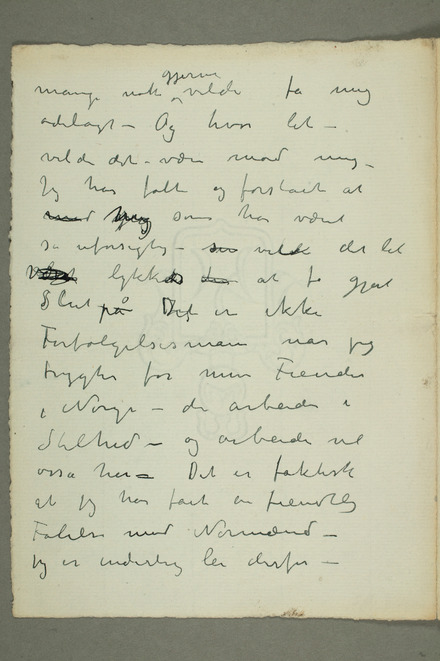 gjerne
mange nok vilde få mig
ødelagt – Og hvor let –
vilde det – være mod mig –
Jeg har følt og forstået at
mod mig som har været
så uforsigtig – vilde det let
lykkes at få gjort
Slut på Det er ikke
Forfølgelsesmani når jeg
frygter for mine Fiender
i Norge – de arbeider i
Stilhed – og arbeider vel
også her – Det er faktisk
at jeg har fåt en fiendtlig
Følelse mod Normænd –
jeg er underlig lei derfor –